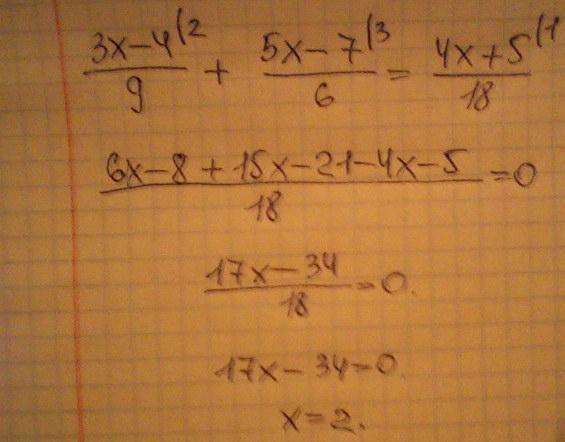 (3x-4)/9 (2 + (5x-7)/6 (3 = (4x+5)/18 (1
(6x-8+15x-21-4x-5)/18 = 0
(17x-34)/18 = 0.
17x-34=0.
x=2.